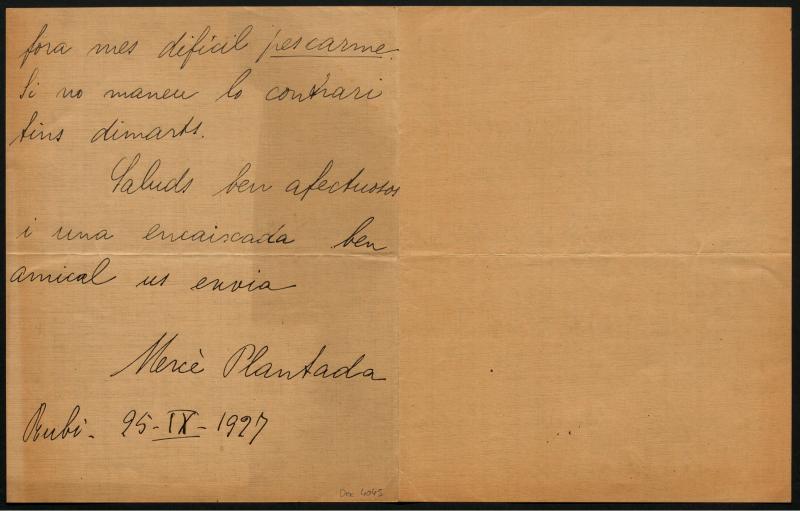 fóra mes dificil pescarme.
Si no maneu lo contrari
fins dimarts.
Saluds ben afectuosos
i una encaiscada ben
amical us envia
Mercè Plantada
Rubí - 25-IX-1927
Doc 4045